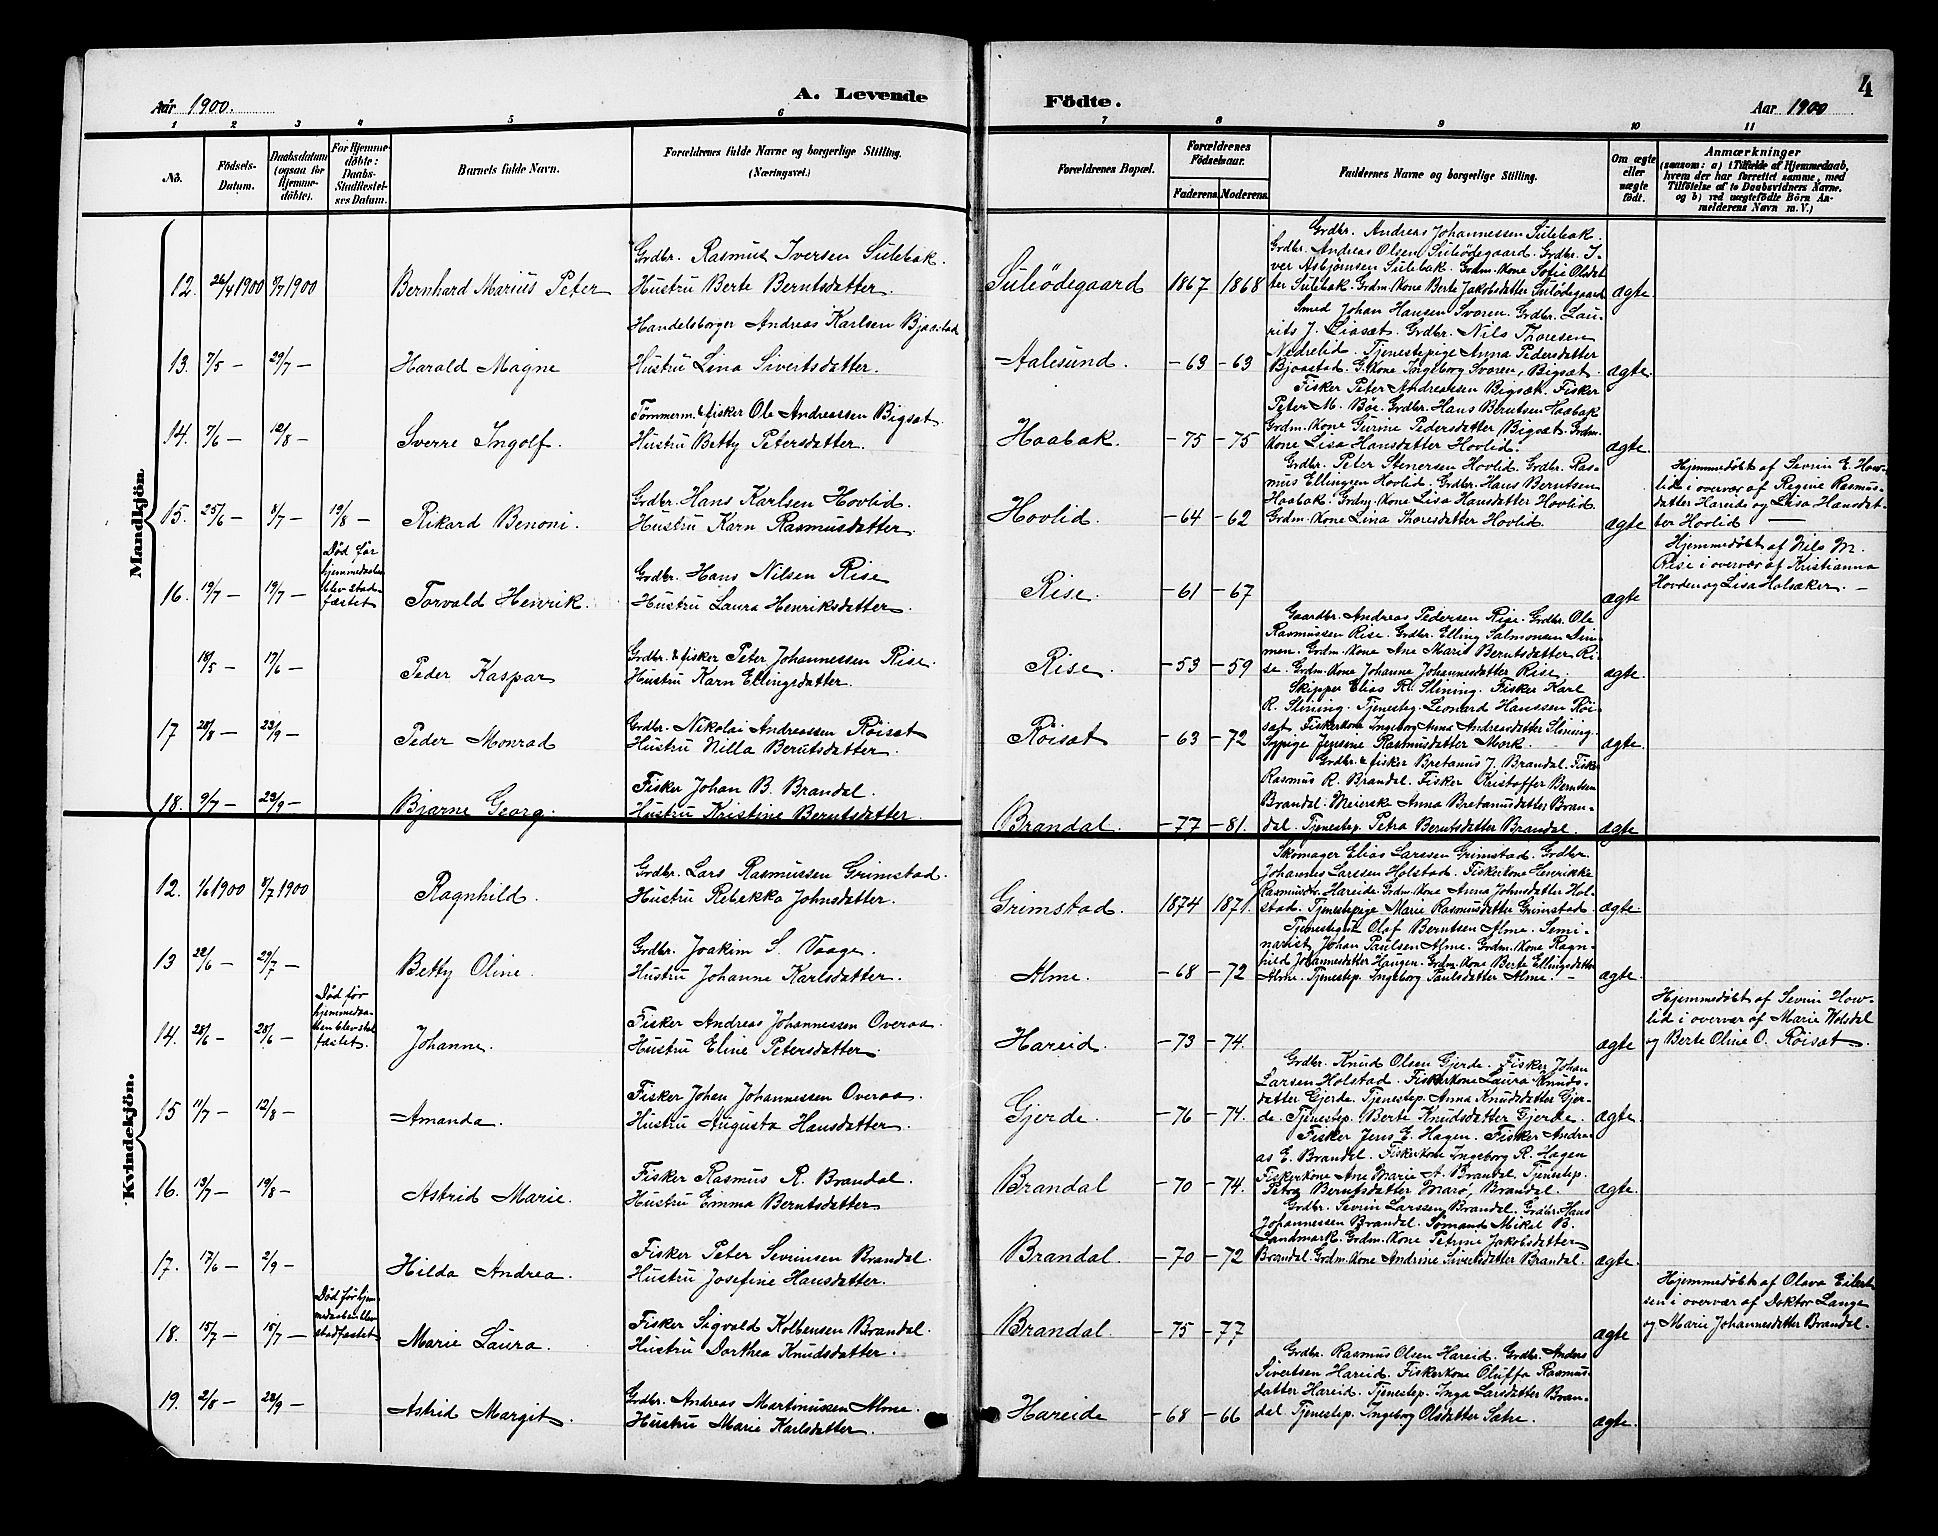 Aar 1900.
A. Levende
1 2 3 4 5 6
No.
Födsels-
Datum.
Daabsdatum
(ogsaa for
Hjemme-
döbte).
For Hjemme-
döbte:
Daabs-
Stadfæstel-
ses Datum.
Barnets fulde Navn.
Forældrenes fulde Navne og borgerlige Stilling.
(Næringsvei.)
Mandkjön
Grdbr. Rasmus Iversen Sulebak.
12. 26/4 1900 8/7 1900 Bernhard Marius Peter Hustru Berte Berntsdatter.
Handelsborger Andreas Karlsen Bjaastad
13. 7/5 — 29/7 — Harald Magne Hustru Lina Sivertsdatter.
Tømmerm. & fisker Ole Andreassen Bigsæt.
14. 7/6 — 12/8 — Sverre Ingolf. Hustru Betty Petersdatter.
Grdbr. Hans Karlsen Hovlid.
15. 25/6 — 8/7 — 19/8 — Rikard Benoni. Hustru Karn Rasmusdatter.
Død før
hjemmedaaben
blev stad-
fæstet.
Grdbr. Hans Nilsen Rise
16. 19/7 — 19/7 — Torvald Henrik. Hustru Laura Henriksdatter.
Grdbr. & fisker Peter Johannessen Rise.
18/5 — 17/6 — Peder Kaspar Hustru Karn Ellingsdatter.
Grdbr. Nikolai Andreassen Röisæt
17 28/8 — 23/9 — Peder Monrad Hustru Nilla Berntsdatter.
Fisker Johan B. Brandal.
18. 9/7 — 23/9 — Bjarne Georg. Hustru Kristine Berntsdatter.
Kvindekjön.
Grdbr. Lars Rasmussen Grimstad.
12. 1/6 1900 8/7 1900 Ragnhild. Hustru Rebekka Johnsdatter.
Grdbr. Joakim S. Vaage.
13 22/6 — 29/7 — Betty Oline. Hustru Johanne Karlsdatter.
Død før
hjemmedaa-
ben blev stad-
fæstet.
Fisker Andreas Johannessen Overaa.
14. 28/6 — 28/6 — Johanne. Hustru Eline Petersdatter.
Fisker Johan Johannessen Overaa.
15 11/7 — 12/8 — Amanda. Hustru Augusta Hansdatter.
Fisker Rasmus R. Brandal.
16. 13/7 — 19/8 — Astrid Marie. Hustru Emma Berntsdatter
Fisker Peter Severinsen Brandal.
17. 17/6 — 2/9 — Hilda Andrea. Hustru Josefine Hansdatter.
Død før hjem-
medaaben blev
stadfæstet.
Fisker Sigvald Kolbensen Brandal.
18. 15/7 — 15/7 — Marie Laura. Hustru Dorthea Knudsdatter.
Grdbr. Andreas Martinussen Alme.
19. 2/8 — 23/9 — Astrid Margit. Hustru Marie Karlsdatter.
4
Födte.
Aar 1900
7 8 9 10 11
Forældrenes Bopæl.
Forældrenes
Födselsaar.
Faderens. Moderens.
Faddernes Navne og borgerlige Stilling.
Om ægte
eller
uægte
født.
Anmærkninger
(saasom: a) i Tilfælde af Hjemmedaab,
hvem der har forrettet samme, med
Tilföielse af to Daabsvidners Navne.
og b) ved uægtefödte Börn An-
melderens Navn m. V.)
Grdbr. Andreas Johannessen Sulebak.
Grdbr. Andreas Olsen Suleødegaard. Grdbr. I-
ver Asbjørnsen Sulebak. Grdm. Kone Sofie Olsdat-
ter Sulebak. Grdm. Kone Berte Jakobsdatter Suleødegaard
Suleødegaard 1867 1868 ægte.
Smed Johan Hansen Svoren. Grdbr. Lau-
rits J. Liasæt. Grdbr. Nils Thoresen
Nedrelid. Tjenestepige Anna Pedersdatter
Bjaastad. G. Kone Ingeborg Svoren, Bigsæt.
Aalesund. — 63 — 63 ægte.
Fisker Peter Andreassen Bigsæt. Fisker
Peter M. Böe. Grdbr. Hans Berntsen Haabak
Grdm. Kone Gurine Pedersdatter Bigsæt. Grdm.
Kone Lisa Hansdatter Hovlid.
Haabak. — 75 — 75 ægte.
Grdbr. Peter Stenersen Hovlid. Grdbr. Ras-
mus Ellingsen Hovlid. Grdbr. Hans Berntsen
Haabak. Grdm. Kone Lisa Hansdatter Hovlid
Grdm. Kone Lina Thoresdatter Hovlid.
Hovlid. — 64 — 62 ægte
Hjemmedøbt af Sevrin E. How-
lid i overvær af Regine Rasmus-
datter Hareide og Lisa Hansdat-
ter Hovlid —
Rise. — 61 — 67 ægte
Hjemmedøbt af Nils M.
Rise i overvær af Kristianna
Hovden og Lisa Holsæker. —
Gaardbr. Andreas Pedersen Rise. Grdbr. Ole
Rasmussen Rise. Grdbr. Elling Salmonsen Lin-
men. Grdm. Kone Ane Marie Berntsdatter Ri-
se. Grdm. Kone Johanne Johannesdatter Rise.
Rise — 53 — 59 ægte.
Skipper Elias R. Slining. Fisker Karl
R. Slining. Tjenesteg. Leonard Hanssen Röi-
sæt. Fiskerkone Ingeborg Anna Andreasdatter Slining.
Sypige Jensine Rasmusdatter Mork.
Röisæt — 63 — 72 ægte.
Grdbr. & fisker Bretanus J. Brandal. Fisker
Rasmus R. Brandal. Fisker Kristoffer Berntsen
Brandal. Meierske Anna Bretanusdatter Bran-
dal. Tjenestep. Petra Berntsdatter Brandal.
Brandal. — 77 — 81. ægte
Skomager Elias Larssen Grimstad. Grdbr.
Johannes Larssen Holstad. Fiskerkone Henrikke
Rasmusdtr. Hareide. Grdm. Kone Anna Johnsdatter Hol-
stad. Tjenestepige Marie Rasmusdatter Grimstad.
Grimstad. 1874 1871. ægte.
Tjenestegut Olaf Berntsen Alme. Semi-
narist Johan Paulsen Alme. Grdm. Kone Ragn-
hild Johannesdatter Haugen. Grdm. Kone Berte Ellingsdatter
Alme. Tjenestep. Ingeborg Paulsdatter Alme. —
Alme. — 68 — 72 ægte.
Hareid. — 73 — 74. ægte
Hjemmedøbt af Sevrin How-
lid i overvær af Marie Wolsdal
og Berte Oline O. Röisæt.
Grdbr. Knud Olsen Gjerde. Fisker Johan
Larsen Holstad. Fiskerkone Laura Knuds-
datter Gjerde. Tjenestep. Anna Knudsdatter Gjer-
de. Tjenestep. Berte Knudsdatter Gjerde.
Gjerde. — 76 — 74. ægte.
Fisker Jens E. Hagen. Fisker Andre-
as E. Brandal. Fiskerkone Ingeborg R. Hagen
Fiskerkone Ane Marie A. Brandal. Tjenestep.
Petra Berntsdatter Marø, Brandal.
Brandal — 70 — 74. ægte.
Grdbr. Sevrin Larssen Brandal. Grdbr. Hans
Johannessen Brandal. Sømand Mikal B.
Landmark. Grdm. Kone Petrine Jakobsdatter
Brandal. Grdm. Kone Andrine Sivertsdatter Brandal.
Brandal. — 70 — 72 ægte.
Brandal. — 75 — 77 ægte
Hjemmedøbt af Olava Eilert-
sen i overvær af Doktor Lange
og Marie Johannesdatter Brandal.
Grdbr. Rasmus Olsen Hareid. Grdbr. Anders
Sivertsen Hareid. Fiskerkone Oluffa Rasmus-
datter Hareid. Tjenestep. Inga Larsdatter Bran-
dal. Tjenestep. Ingeborg Olsdatter Sætre.
Hareide — 68 — 66 ægte.